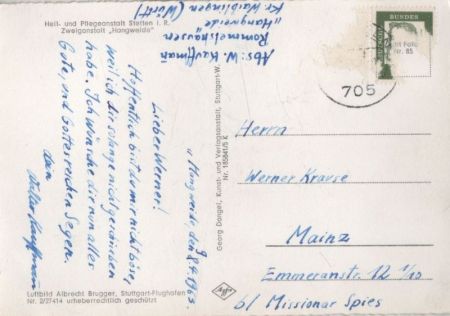 Heil- und Pflegeanstalt Stetten i. R.
Zweiganstalt „Hangweide"
Abs: W. Kauffmann
Rommelshausen
„Hangweide"
Kr Waiblingen (Württ)
„Hangweide, d 8.4.1963.
Lieber Werner!
Hoffentlich bist du mir nicht böse,
weil ich dir so lange nicht geschrieben
habe. Ich wünsche dir nun alles
Gute, und Gottesreichen Segen.
dein
Walter Kauffmann
Luftbild Albrecht Brugger, Stuttgart-Flughafen
Nr. 2/27414 urheberrechtlich geschützt
Georg Dangel, Kunst- und Verlagsanstalt, Stuttgart-W.
Nr. 185841/5 K
Agfa
BUNDES
Foto
Nr. 85
705
Herrn
Werner Krause
Mainz
Emmeranstr. 12 1/10
b/ Missionar Spies